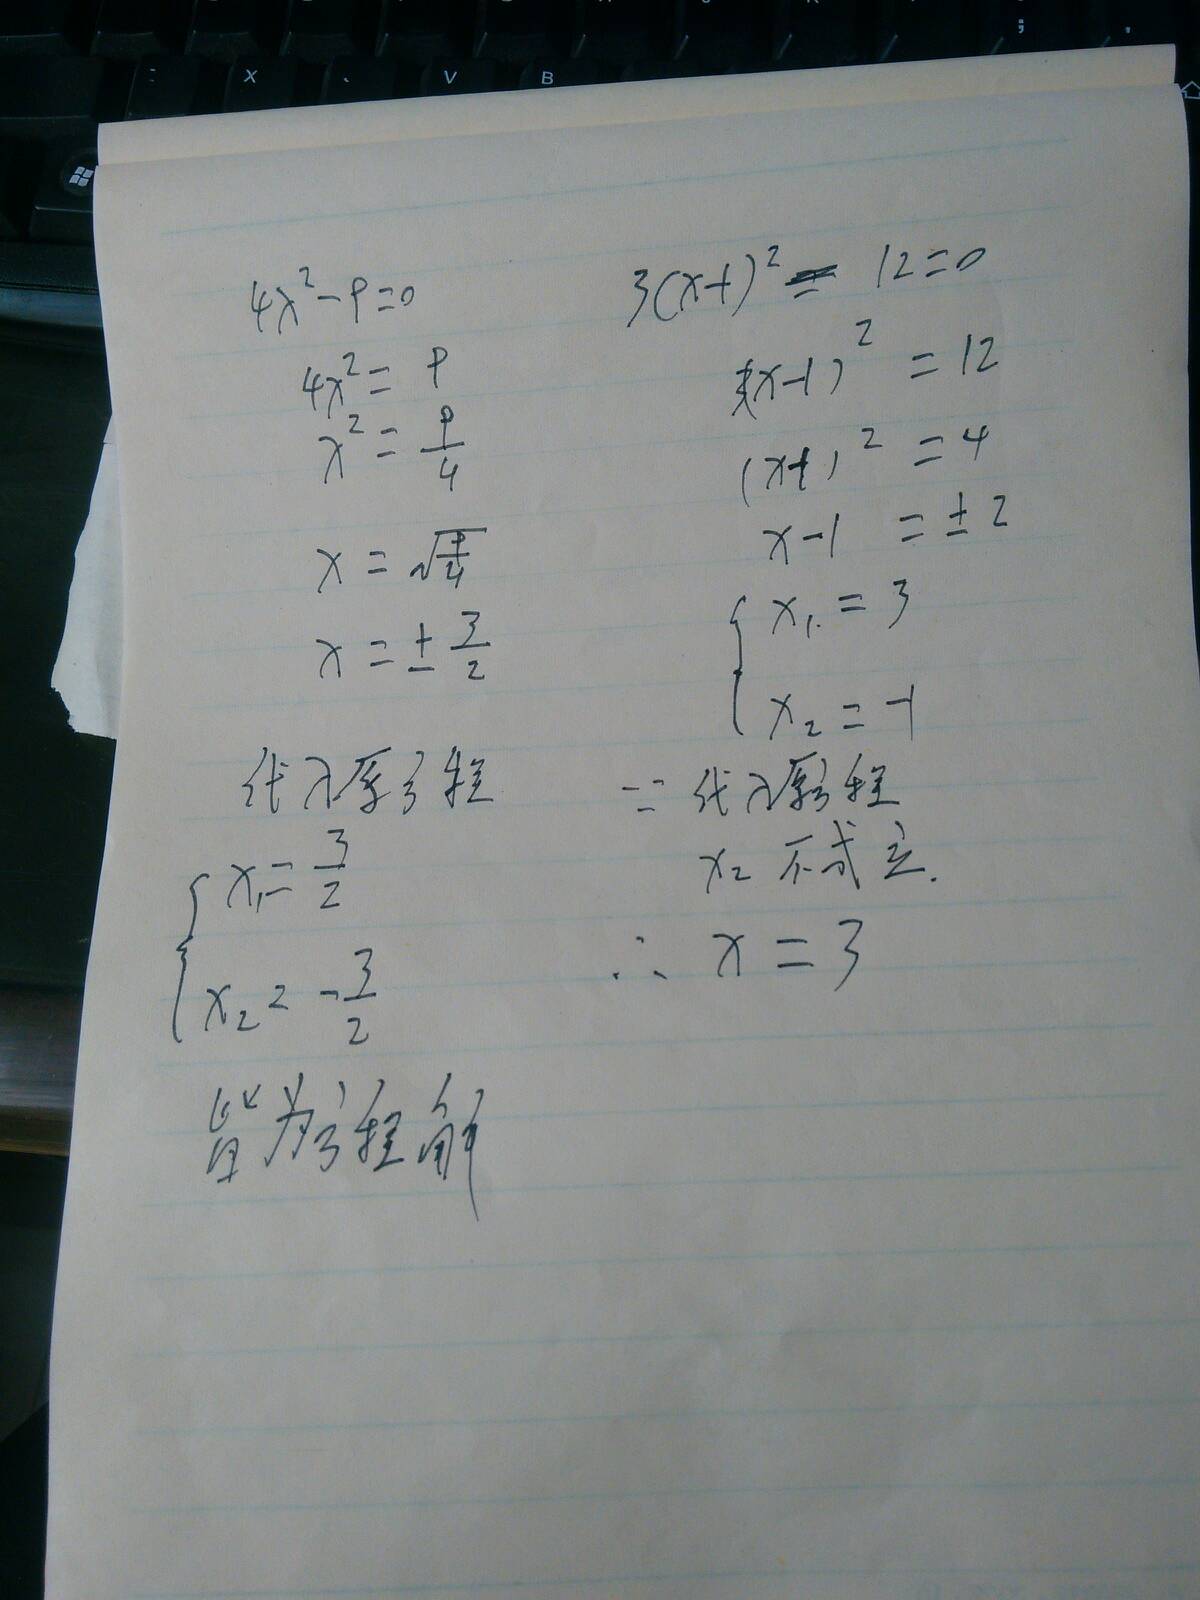 4x²-9=0
4x²= 9
x²= 9/4
x=√(9/4)
x=±3/2
代入原方程
x₁=3/2
x₂= -3/2
皆为方程解
3(x-1)²- 12=0
3(x-1)² =12
(x-1)² =4
x-1 =±2
x₁=3
x₂=-1
∵代入原方程
x₂不成立.
∴ x=3
X
V
B
;